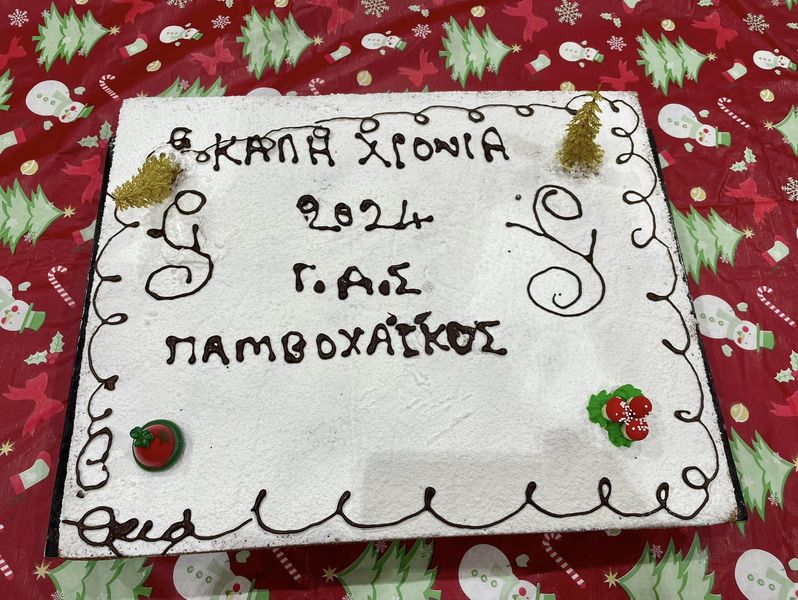 ΚΑΛΗ ΧΡΟΝΙΑ
2024
Γ.Α.Σ
ΠΑΜΒΟΧΑΪΚΟΣ